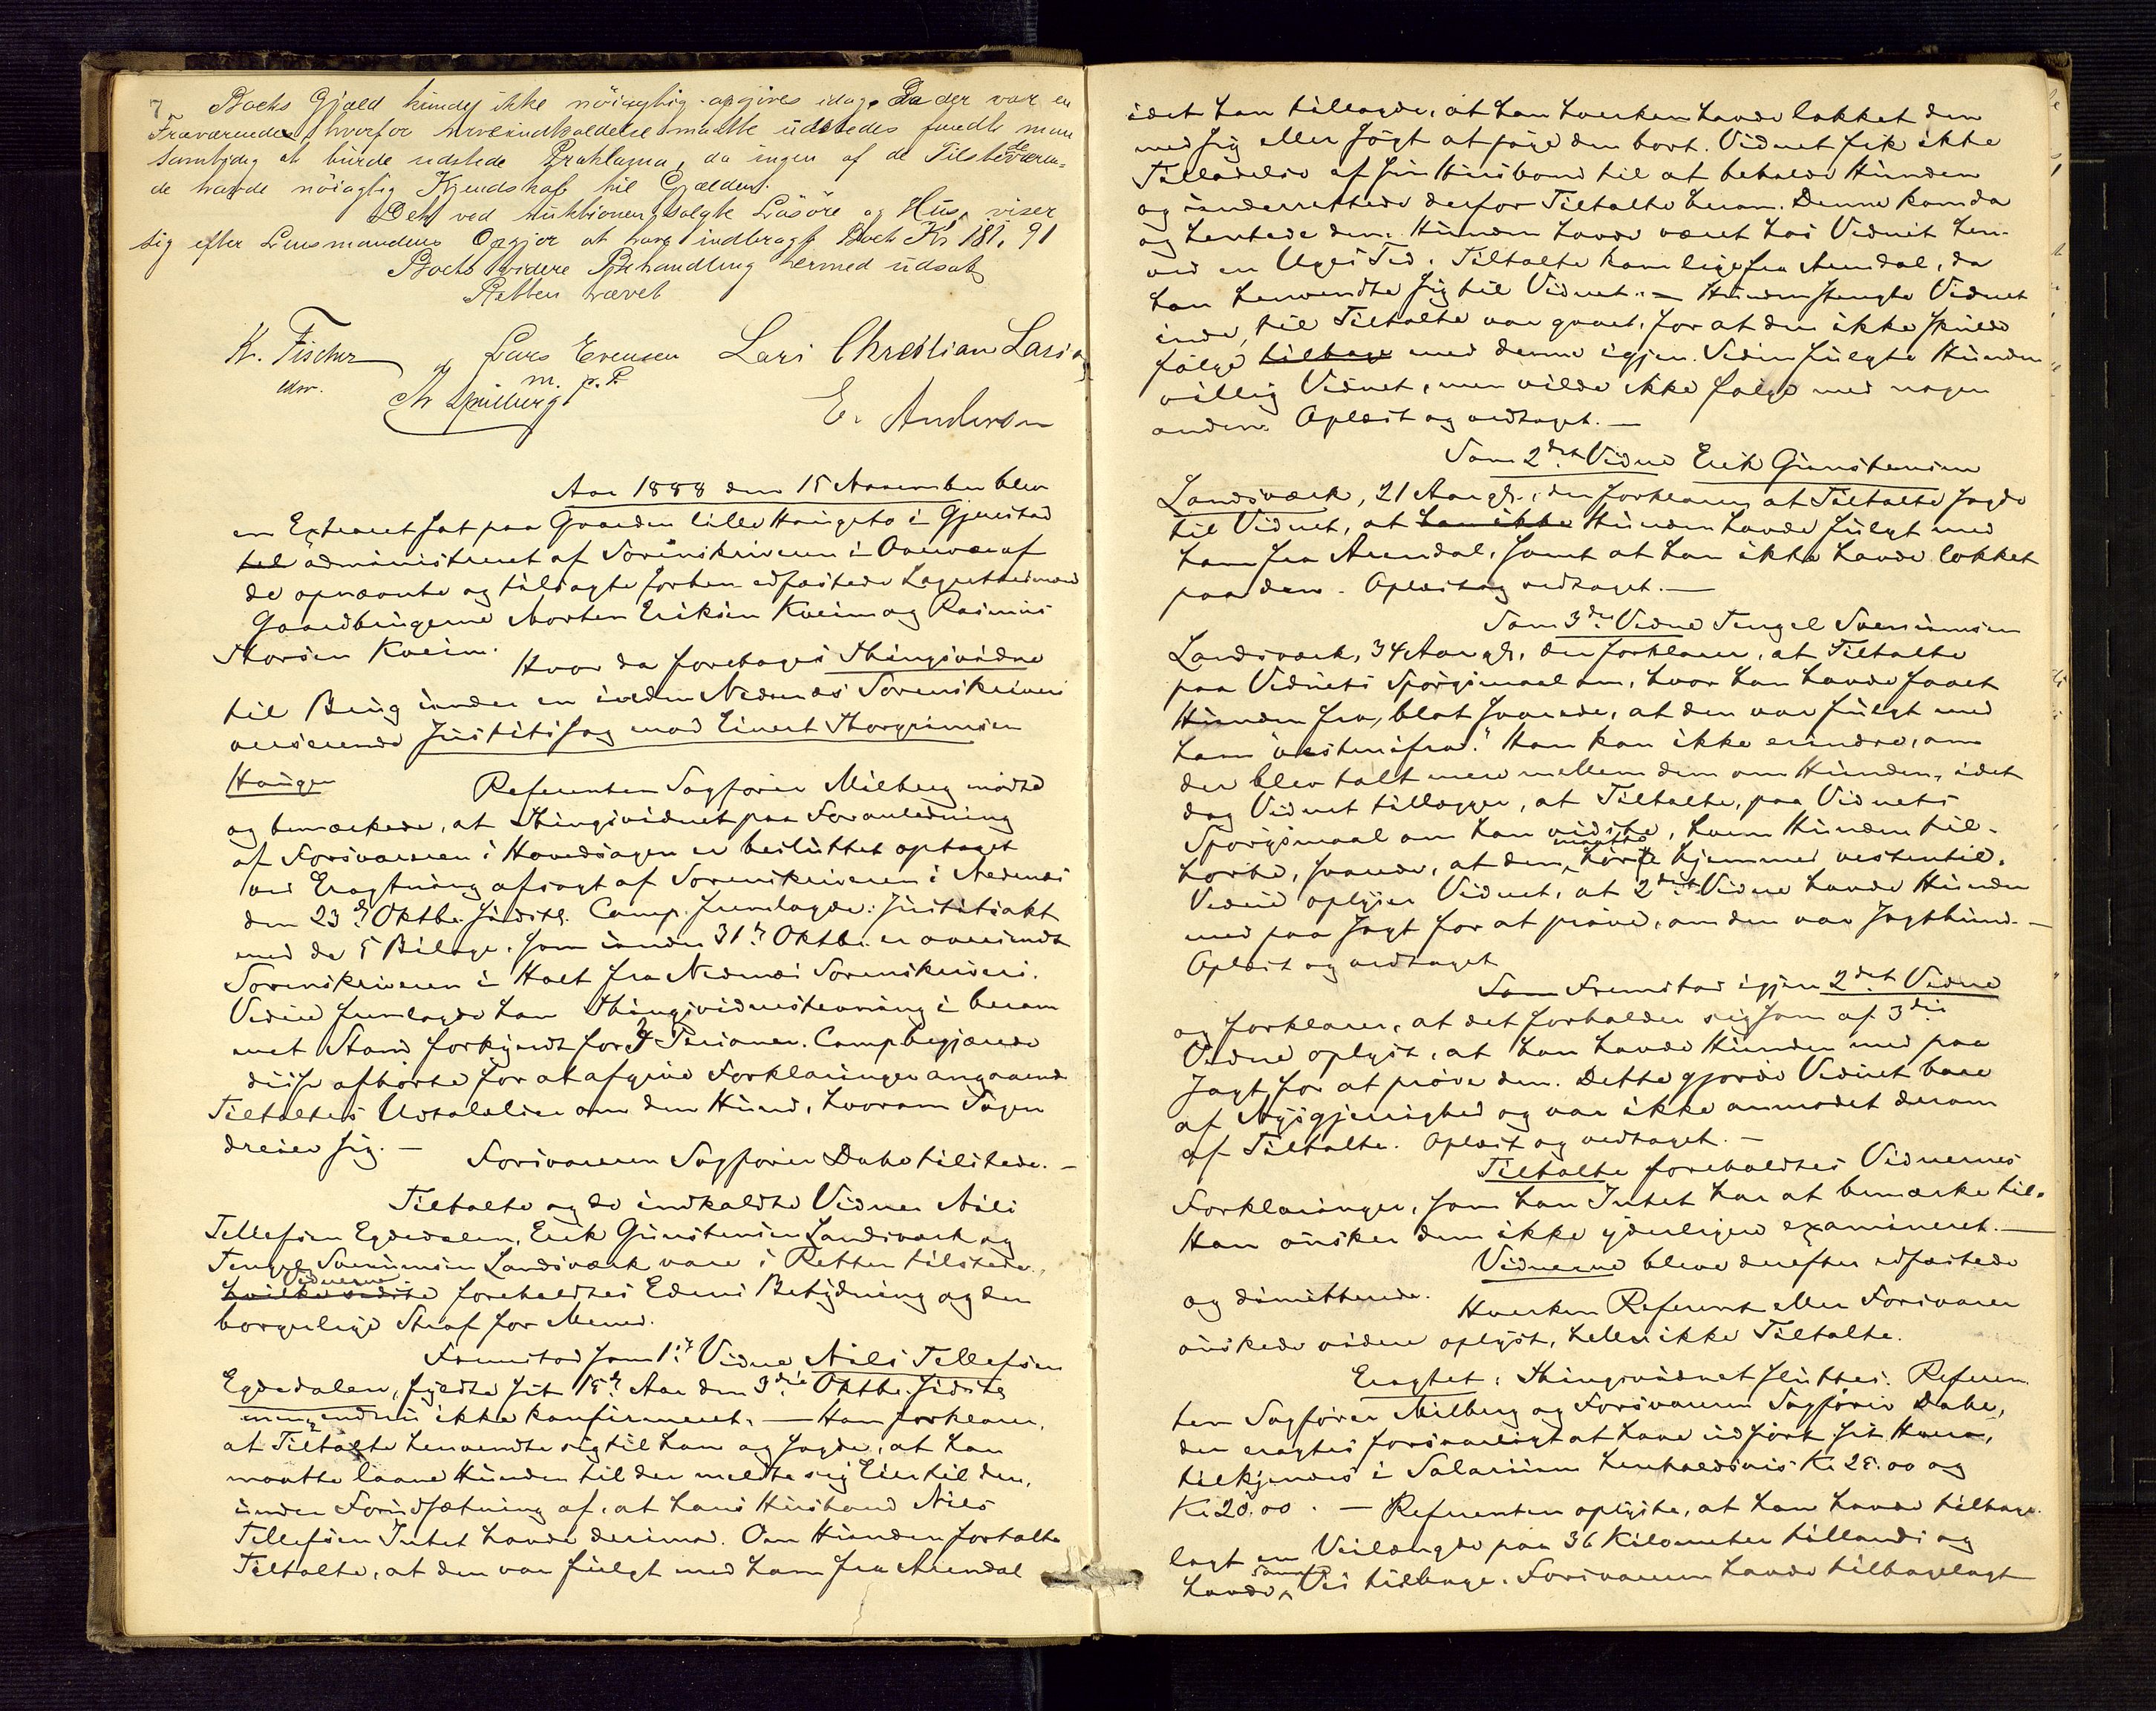 7.
Boets Gjæld kunde ikke nöiagtig opgives idag. Da der var en
Fraværende, hvorfor Arveindkaldelse maatte udstedes fandt man
samtidig at burde udstede Proklama, da ingen af de Tilstedeværen-
de havde nöiagtig Kjendskab til Gjælden.
Det ved Auktionen solgte Lösöre og Hus, viser
sig efter Lensmandens Opgjør at have indbragt Boet Kr 181,91
Boets videre Behandling hermed udsat
Retten hævet
K. Fischer Lars Evensen Lars Christian Larsen
edsv. m. p. P.
E. Andersen
Aar 1888 den 15 November blev
en Extraret sat paa Gaarden lille Haugeto i Gjerstad
tel administreret af Sorenskriveren i Overvær af
de opnævnte og tilsagte forhen edfæstede Lagrettesmænd
Gaardbrugerne Morten Eriksen Kveim og Rasmus
Thorsen Kveim.
Hvor da foretages Thingsvidne
til Brug under en inden Nedenæs Sorenskriveri
verserende Justitssag mod Einert Thorgrimsen
Haugen
Referenten Sagfører Milberg mödte
og bemærkede, at Thingsvidnet paa Foranledning
af Forsvareren i Hovedsagen er besluttet optaget
ved Eragtning afsagt af Sorenskriveren i Nedenæs
den 23de Oktbr. sidstl. Comp. fremlagde: Justitsakt
med de 5 Bilage, som under 31te Oktbr. er oversendt
Sorenskriveren i Holt fra Nedenæs Sorenskriveri.
Videre fremlagde han Thingsvidnestevning i beram
met Stand forkyndt for 4 Personer. Comp begjærede
disse afhörte for at afgive Forklaringer angaaende
Tiltaltes Udtalelser om den Hund, hvorom Sagen
dreier sig. —
Forsvareren Sagfører Dahl tilstede. —
Tiltalte og de indkaldte Vidner Nils
Tellefsen Egdedalen, Erik Gunstensen Landsværk og
Tengel Svenumsen Landsværk vare i Retten tilstede.
Vidnerne
hvilke sidste foreholdtes Edens Betydning og den
borgerlige Straf for Mened.
Fremstod som 1ste Vidne Nils Tellefsen
Egdedalen, fyldte sit 15de Aar den 3die Oktbr. sidstl.
men endnu ikke konfirmeret. — Han forklarer,
at Tiltalte henvendte sig til ham og sagde, at han
maatte laane Hunden til der meldte sig Eier til den,
under Forudsætning af, at hans Husbond Nils
Tellefsen Intet havde derimod. Om Hunden fortalte
Tiltalte, at den var fulgt med ham fra Arendal
idet han tillagde, at han hverken havde lokket den
med sig eller søgt at jage den bort. Vidnet fik ikke
Tilladelse af sin Husbond til at beholde Hunden
og underrettede derfor Tiltalte herom. Denne kom da
og hentede den. Hunden havde været hos Vidnet hen-
ved en Uges Tid. Tiltalte kom lige fra Arendal, da
han henvendte sig til Vidnet. — Hunden stængte Vidnet
inde, til Tiltalte var gaaet, for at den ikke skulde
følge tilbage med denne igjen. Siden fulgte Hunden
villig Vidnet, men vilde ikke følge med nogen
anden. Oplæst og vedtaget. —
Som 2det Vidne Erik Gunstensen
Landsværk, 21 Aar gl., der forklarer at Tiltalte sagde
til Vidnet, at han ikke Hunden havde fulgt med
ham fra Arendal, samt at han ikke havde lokket
paa den. Oplæst og vedtaget. —
Som 3die Vidne Tengel Svenumsen
Landsværk, 34 Aar gl., der forklarer, at Tiltalte
paa Vidnets Spørgsmaal om, hvor han havde faaet
Hunden fra, blot svarede, at den var fulgt med
ham "vestenifra". Han kan ikke erindre, om
der blev talt mere mellem dem om Hunden, idet
dog Vidnet tillægger, at Tiltalte, paa Vidnets
Spørgsmaal om han vidste, hvem Hunden til-
maatte
hørte, svarede, at den høre hjemme vestentil.
Videre oplyser Vidnet, at 2det Vidne havde Hunden
med paa Jagt for at prøve, om den var Jagthund. —
Oplæst og vedtaget
Som Fremstod igjen 2det Vidne
og forklarer, at det forholder sig som af 3die
Vidne oplyst, at han havde Hunden med paa
Jagt for at prøve den. Dette gjorde Vidnet bare
af Nysgjerrighed og var ikke anmodet derom
af Tiltalte. Oplæst og vedtaget. —
Tiltalte foreholdtes Vidnernes
Forklaringer, som han Intet har at bemærke til.
Han ønsker dem ikke yderligere examineret. —
Vidnerne bleve derefter edfæstede
og dimitterede.
Hverken Referent eller Forsvarer
ønskede videre oplyst, heller ikke Tiltalte.
Eragtet: Thingsvidnet sluttes. Referen
ten Sagfører Milberg og Forsvareren Sagfører Dahl,
der eragtes forsvarligt at have udført sit Hverv,
tilkjendes i Salarium henholdsvis Kr 25.00 og
Kr 20.00. — Referenten oplyste, at han havde tilbage
lagt en Veilængde paa 36 Kilometer tillands og
samme
havde Vei tilbage. Forsvareren havde tilbagelagt